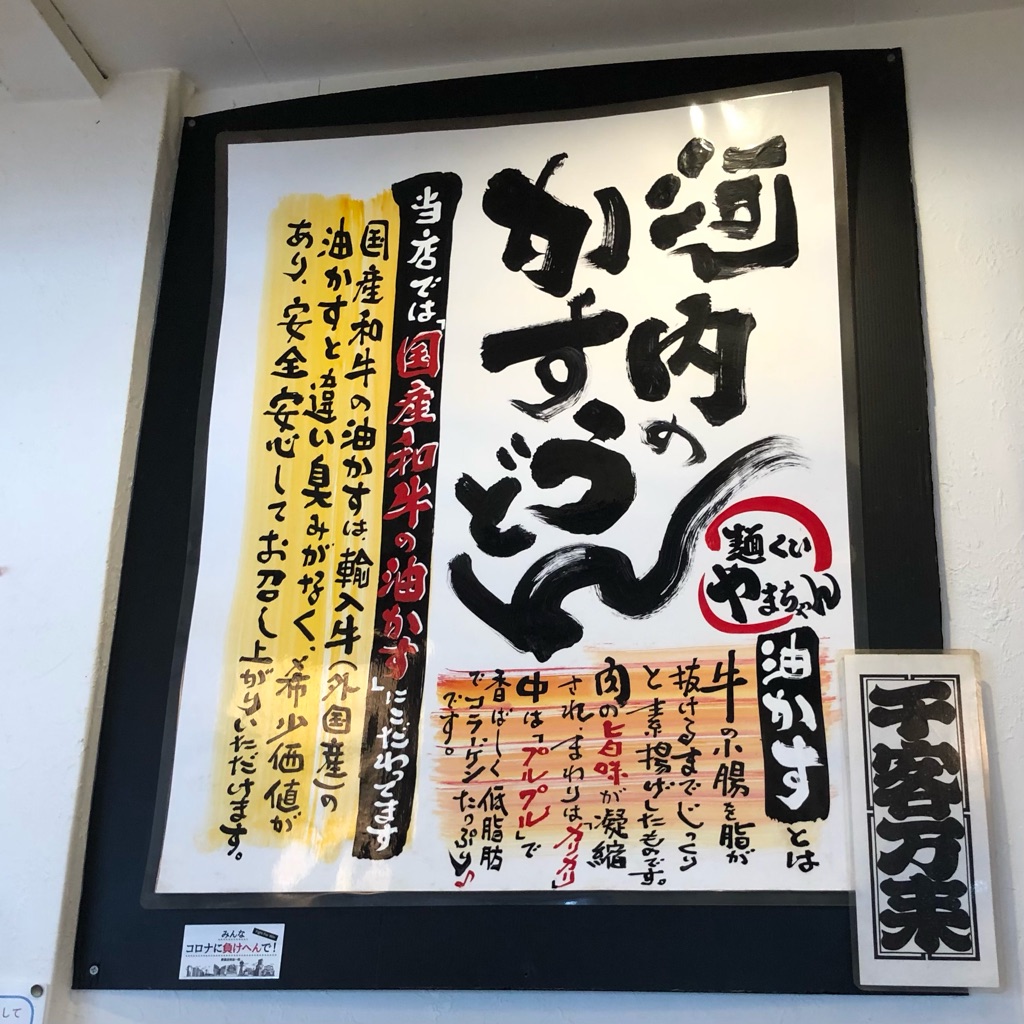 河内の
かすうどん
麺くい
やまちゃん
油かすとは
牛の小腸を脂が
抜けるまでじっくり
と素揚げしたものです。
肉の旨味が凝縮
され、まわりは「カリカリ」
中は「プルプル」で
香ばしく低脂肪
でコラーゲンたっぷり
です。
当店では「国産和牛の油かす」にこだわってます
国産和牛の油かすは、輸入牛(外国産)の
油かすと違い臭みがなく、希少価値が
あり、安全安心してお召し上がりいただけます。
千客万来
みんな
コロナに負けへんで!
して